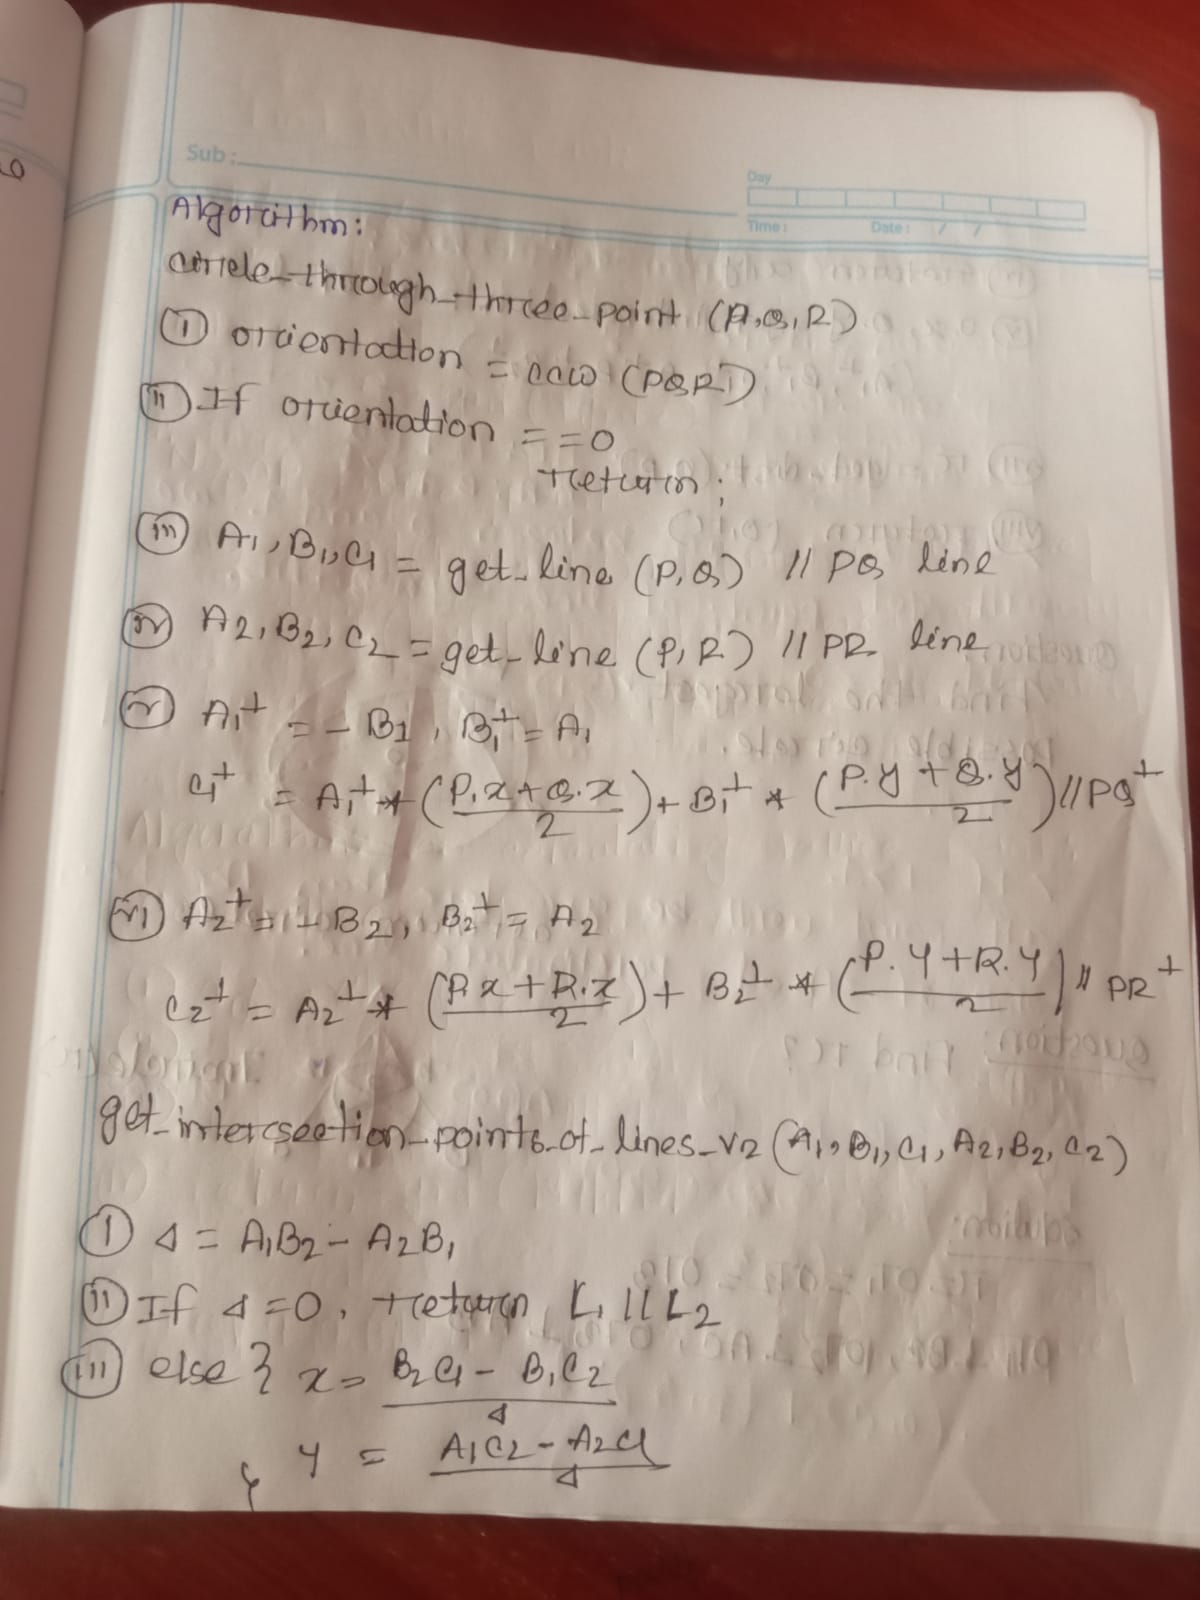 Sub :
Day
Time : Date : / /
Algorithm:
circle_through_three_point (P,Q,R)
(i) orientation = ccw (PQR)
(ii) If orientation == 0
return ;
(iii) A₁, B₁, C₁ = get_line (P, Q) // PQ line
(iv) A₂, B₂, C₂ = get_line (P, R) // PR line
(v) A₁⊥ = - B₁ , B₁⊥ = A₁
C₁⊥ = A₁⊥ * (P.x + Q.x / 2) + B₁⊥ * (P.y + Q.y / 2) // PQ⊥
(vi) A₂⊥ = - B₂, B₂⊥ = A₂
C₂⊥ = A₂⊥ * (P.x + R.x / 2) + B₂⊥ * (P.y + R.y / 2) // PR⊥
get_intersection_points_of_lines_v2 (A₁, B₁, C₁, A₂, B₂, C₂)
(i) Δ = A₁B₂ - A₂B₁
(ii) If Δ = 0, return L₁ || L₂
(iii) else } x = B₂C₁ - B₁C₂ / Δ
{ y = A₁C₂ - A₂C₁ / Δ